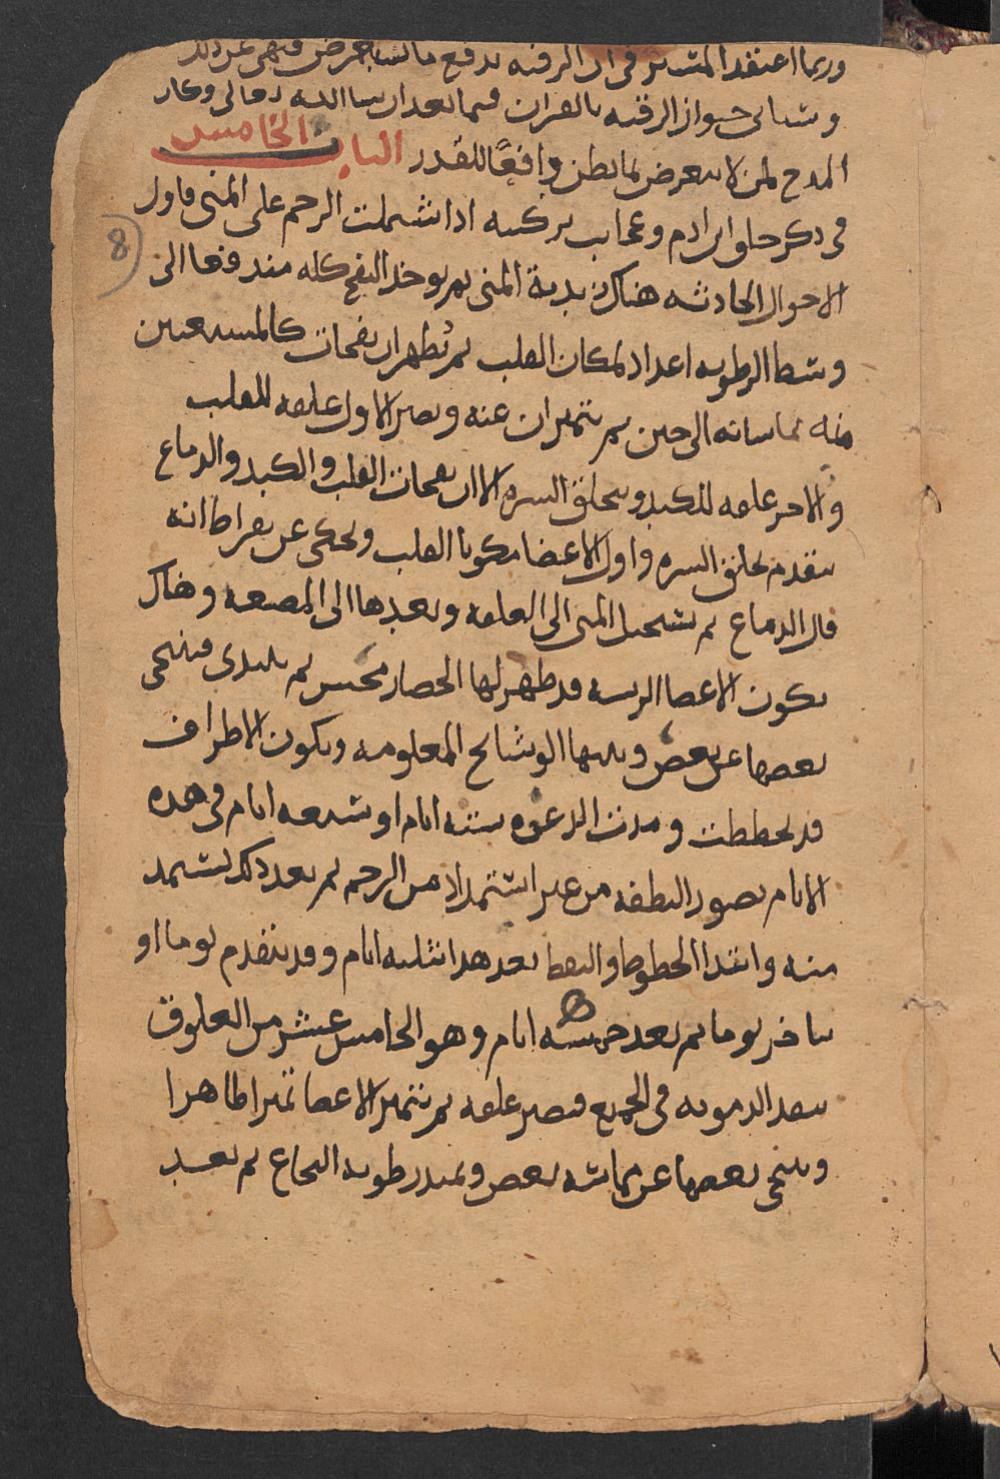 وربما اعتقد المسترقى ان الرقيه تدفع ما سيعرض فنهى عن ذلك
وسياتى جواز الرقيه بالقران فيما بعد ان شا الله تعالى وكان
المدح لمن لا يتعرض لما يظن دافعًا للقدر الباب الخامس
فى ذكر خلق ابن ادم وعجايب تركيبه اذا اشتملت الرحم على المنى فاول
8
الاحوال الحادثه هناك زبدية المنى ثم يوخذ النفخ كله مندفعا الى
وسط الرطوبه اعداد لمكان القلب ثم تظهر ان نفخات كالمتسعين
منه تماسانه الى حين ثم يتميزان عنه ويصير الاول علقه للقلب
والاخر علقه للكبد ويتخلق السره الا ان نفخات القلب والكبد والدماغ
يتقدم تخلق السره واول الاعضا مكونا القلب ويحكى عن بقراط انه
قال الدماغ ثم يستحيل المنى الى العلقه وبعدها الى المضغه وهناك
يكون الاعضا الريسه قد ظهر لها انحصار ثم يبتدى فينحى
بعضها عن بعض ويليها الوشائح المعلومه ويكون الاطراف
قد تخططت ومدت الرغوه سته ايام او سبعه ايام فى هده
الايام تصور النطفه من غير استمداد من الرحم ثم بعد ذلك تستمد
منه وابتدا الخطوط والنقط بعد هدا بثلثه ايام وقد يتقدم يوما او
يتاخر يوما ثم بعد خمسه ايام وهو الخامس عشر من العلوق
ينفد الدمويه فى الجميع فيصير علقه ثم يتميز الاعضا تميزا ظاهرا
وينحى بعضها عن مماسه بعض ويمتد رطوبه النخاع ثم بعد